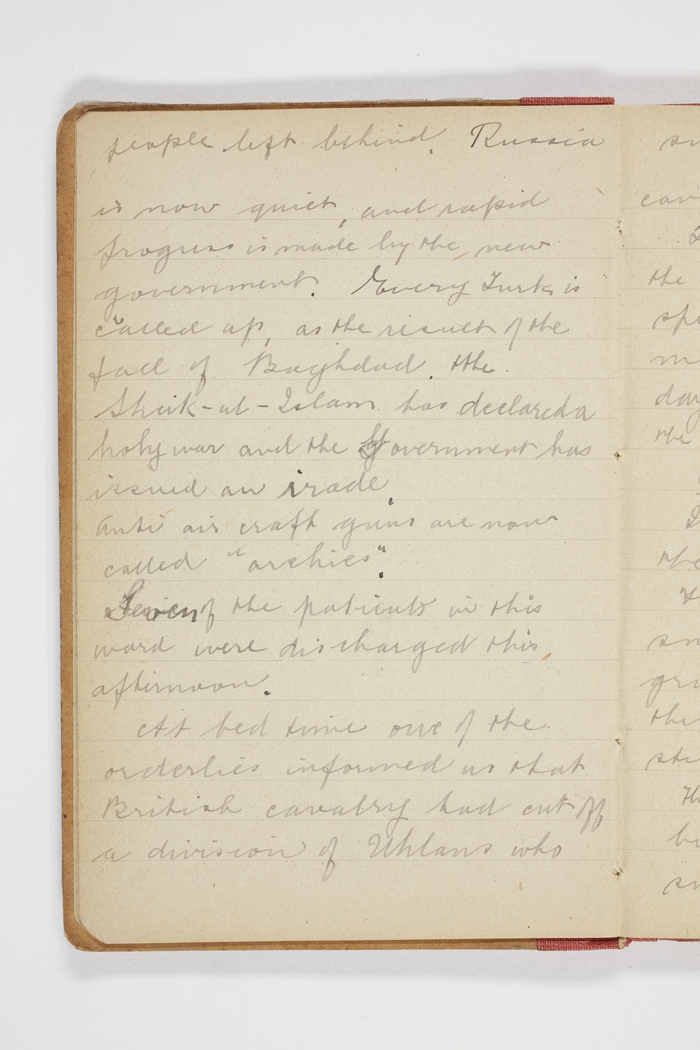 people left behind. Russia
is now quiet, and rapid
progress is made by the new
government. Every Turk is
called up, as the result of the
fall of Baghdad. The
Sheik-ul-Islam has declared a
holy war and the Government has
issued an irade.
Anti air craft guns are now
called "archies".
Seven of the patients in this
ward were discharged this
afternoon.
At bed time one of the
orderlies informed us that
British cavalry had cut off
a division of Uhlans who
the
the
the